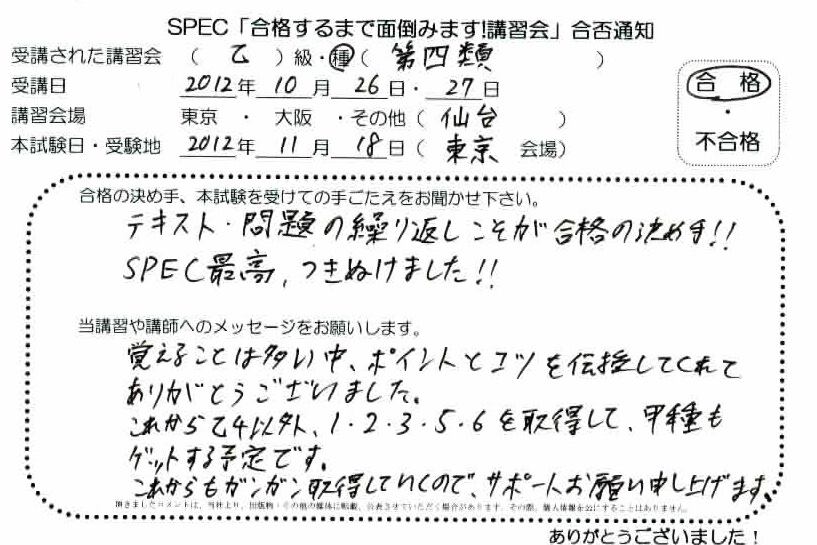 SPEC「合格するまで面倒みます!講習会」合否通知
受講された講習会 （ 乙 ）級・種（ 第四類 ）
受講日 2012年 10月 26日・27日
講習会場 東京 ・ 大阪 ・その他（ 仙台 ）
本試験日・受験地 2012年 11月 18日（ 東京 会場）
合 格
・
不合格
合格の決め手、本試験を受けての手ごたえをお聞かせ下さい。
テキスト・問題の繰り返しこそが合格の決め手!!
SPEC最高、つきぬけました!!
当講習や講師へのメッセージをお願いします。
覚えることは多い中、ポイントとコツを伝授してくれて
ありがとうございました。
これから乙4以外、1・2・3・5・6を取得して、甲種も
ゲットする予定です。
これからもガンガン取得していくので、サポートお願い申し上げます。
頂きましたコメントは、当社より、出版物・その他の媒体に転載、公表させていただく場合があります。その際、個人情報を公にすることはありません。
ありがとうございました！